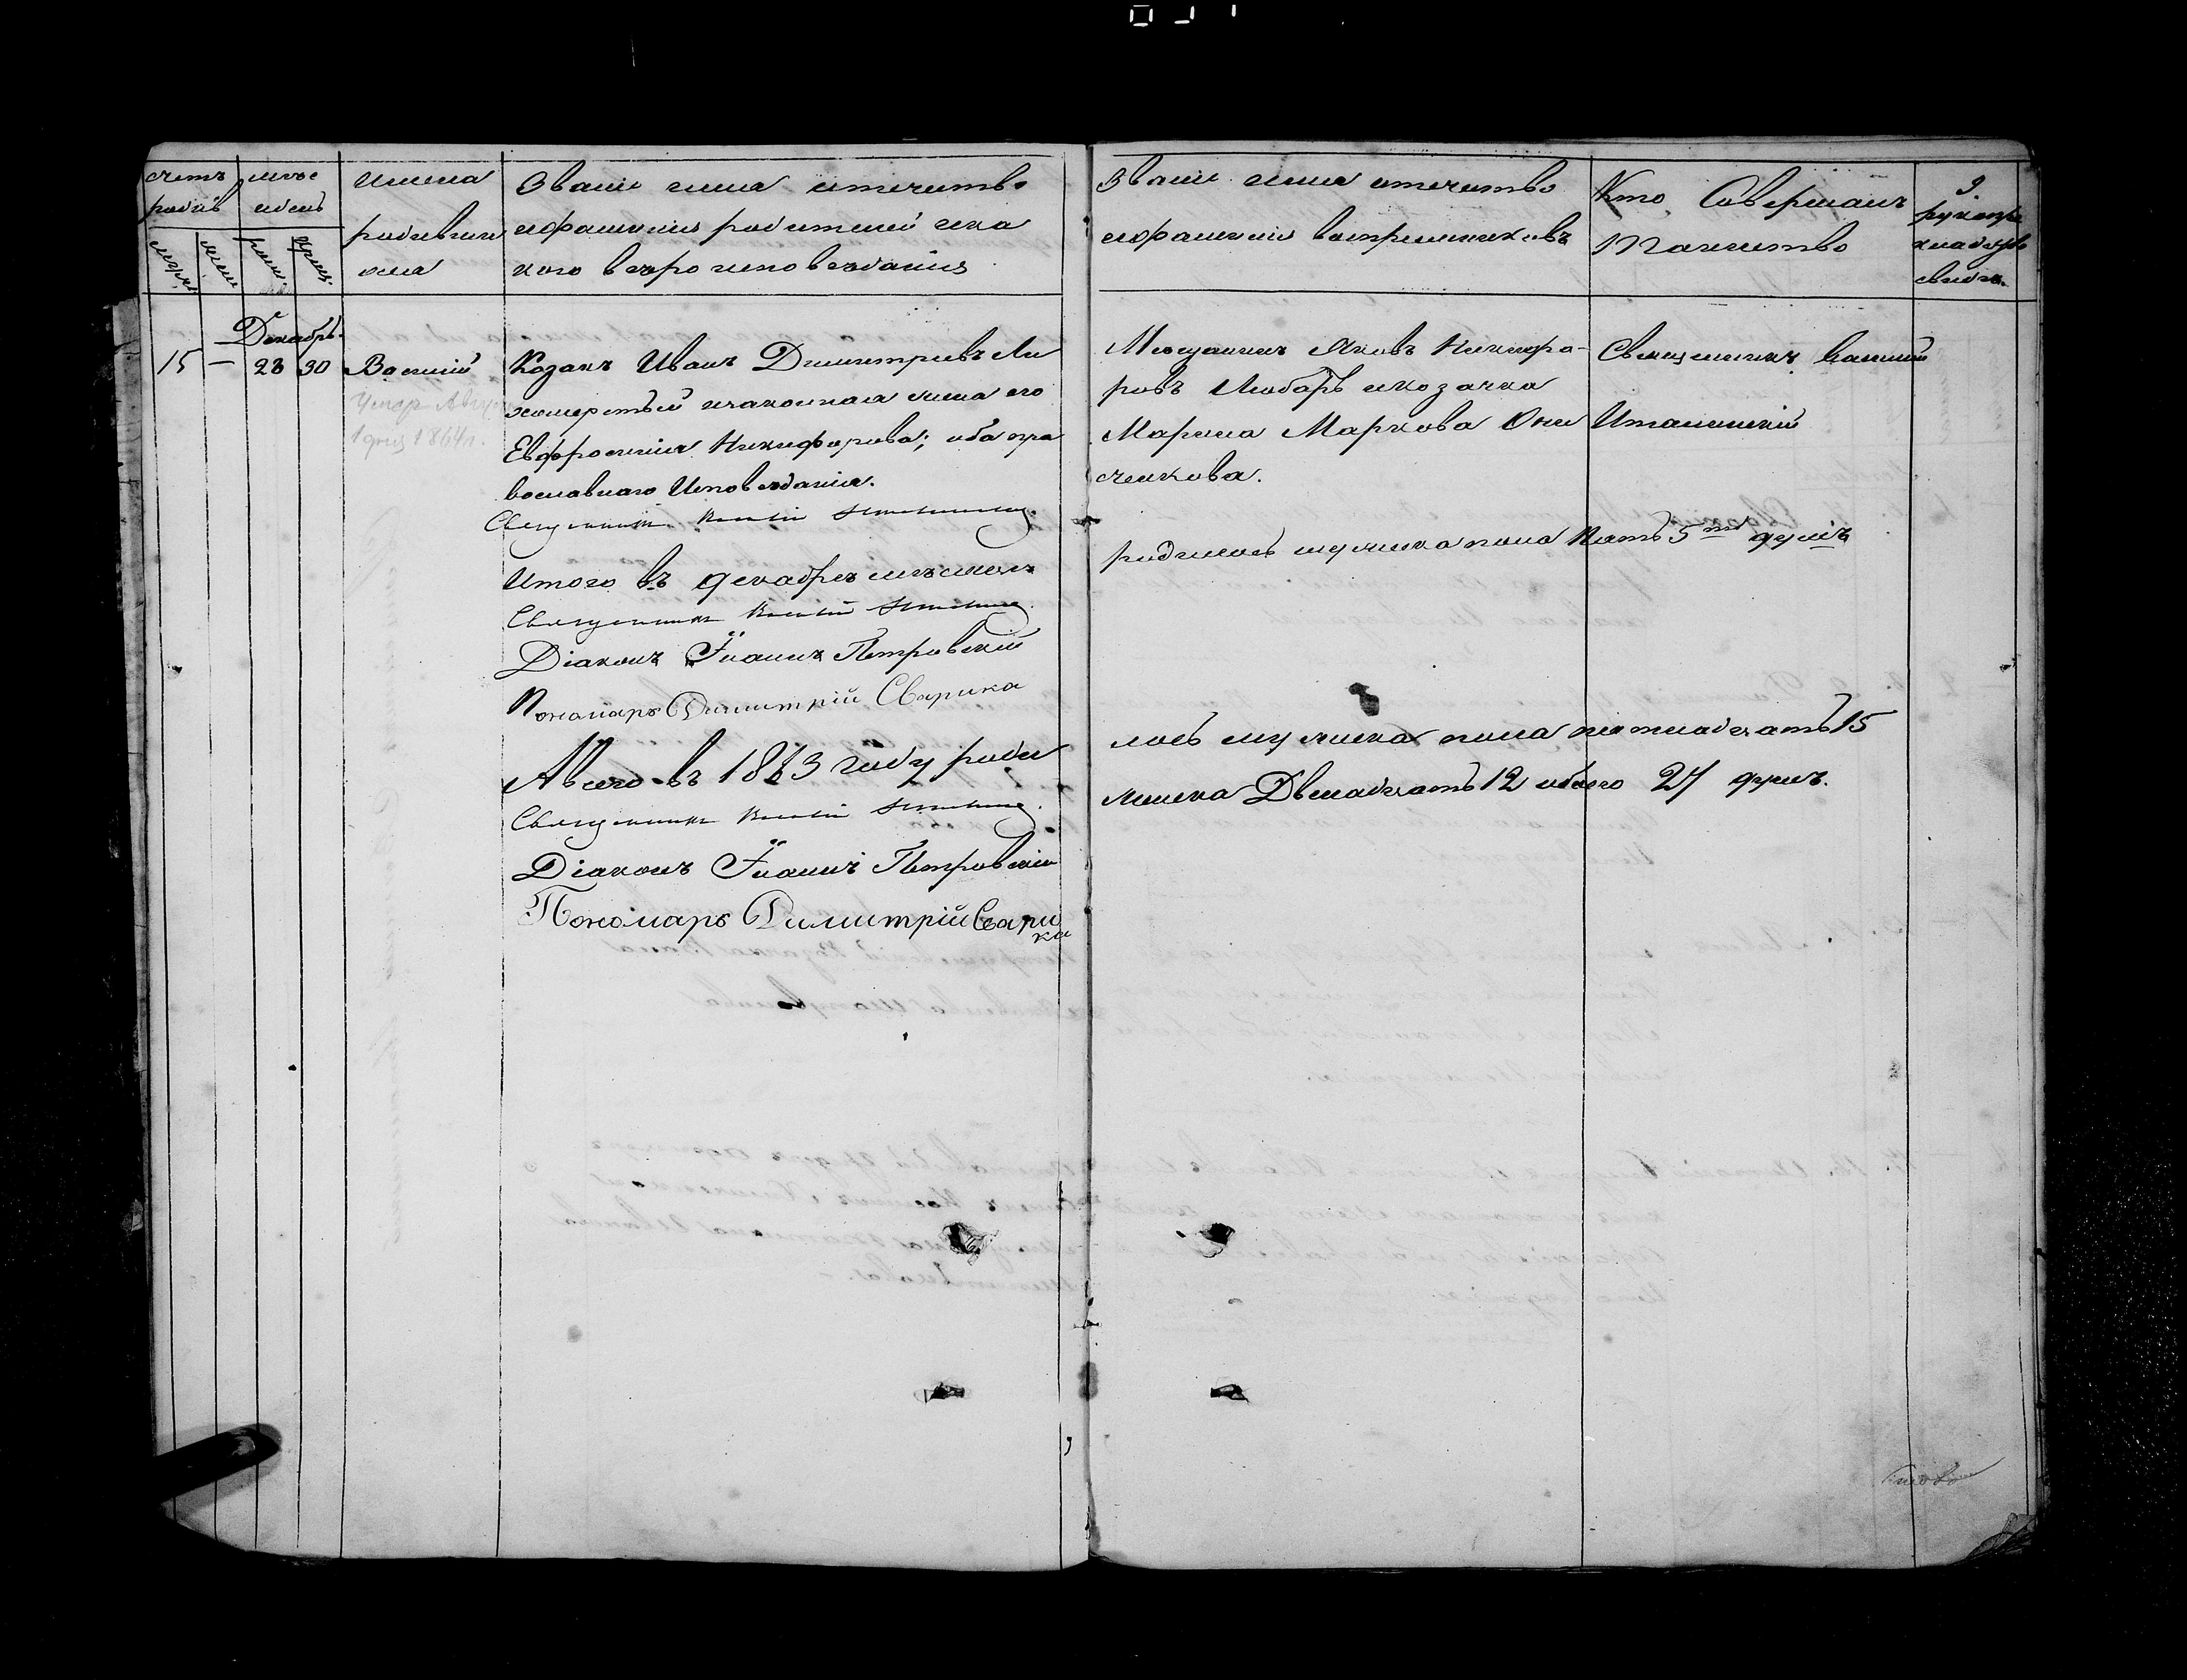 счетъ
родив
муж.
жен.
мѣс
и день
рожд.
крещ.
Имена
родивших
ся
Званіе имя отчество
и фамилія родителей и ка
кого вѣроисповѣданія
Званіе имя отчество
и фамилія воспріемниковъ
Кто Совершалъ
Таинство
рукопр
свидѣ.
Декабрь
15 — 28 30
Василій
Умер Август
1 дня 1864 г.
Козакъ Иванъ Димитріевъ Ли
хошерстый и законная жена его
Евфросинія Никифорова; оба пра
вославнаго Исповѣданія.
Священникъ Василій
Итого въ декабрѣ мѣсяцѣ
Священникъ Василій
Діаконъ Іоаннъ Петровскій
Пономарь Димитрій Сварика
А всего въ 1863 году роди
Священникъ Василій
Діаконъ Іоаннъ Петровскій
Пономарь Димитрій Свари
ка
Мѣщанинъ Яковъ Никифо-
ровъ Любарь и козачка
Марина Маркова Они
сченкова.
Священникъ Василій
родилось мужеска пола пять 5 ть душъ
лось мужеска пола пятнадцать 15
женска Двѣнадцать 12 обоего 27 душъ.